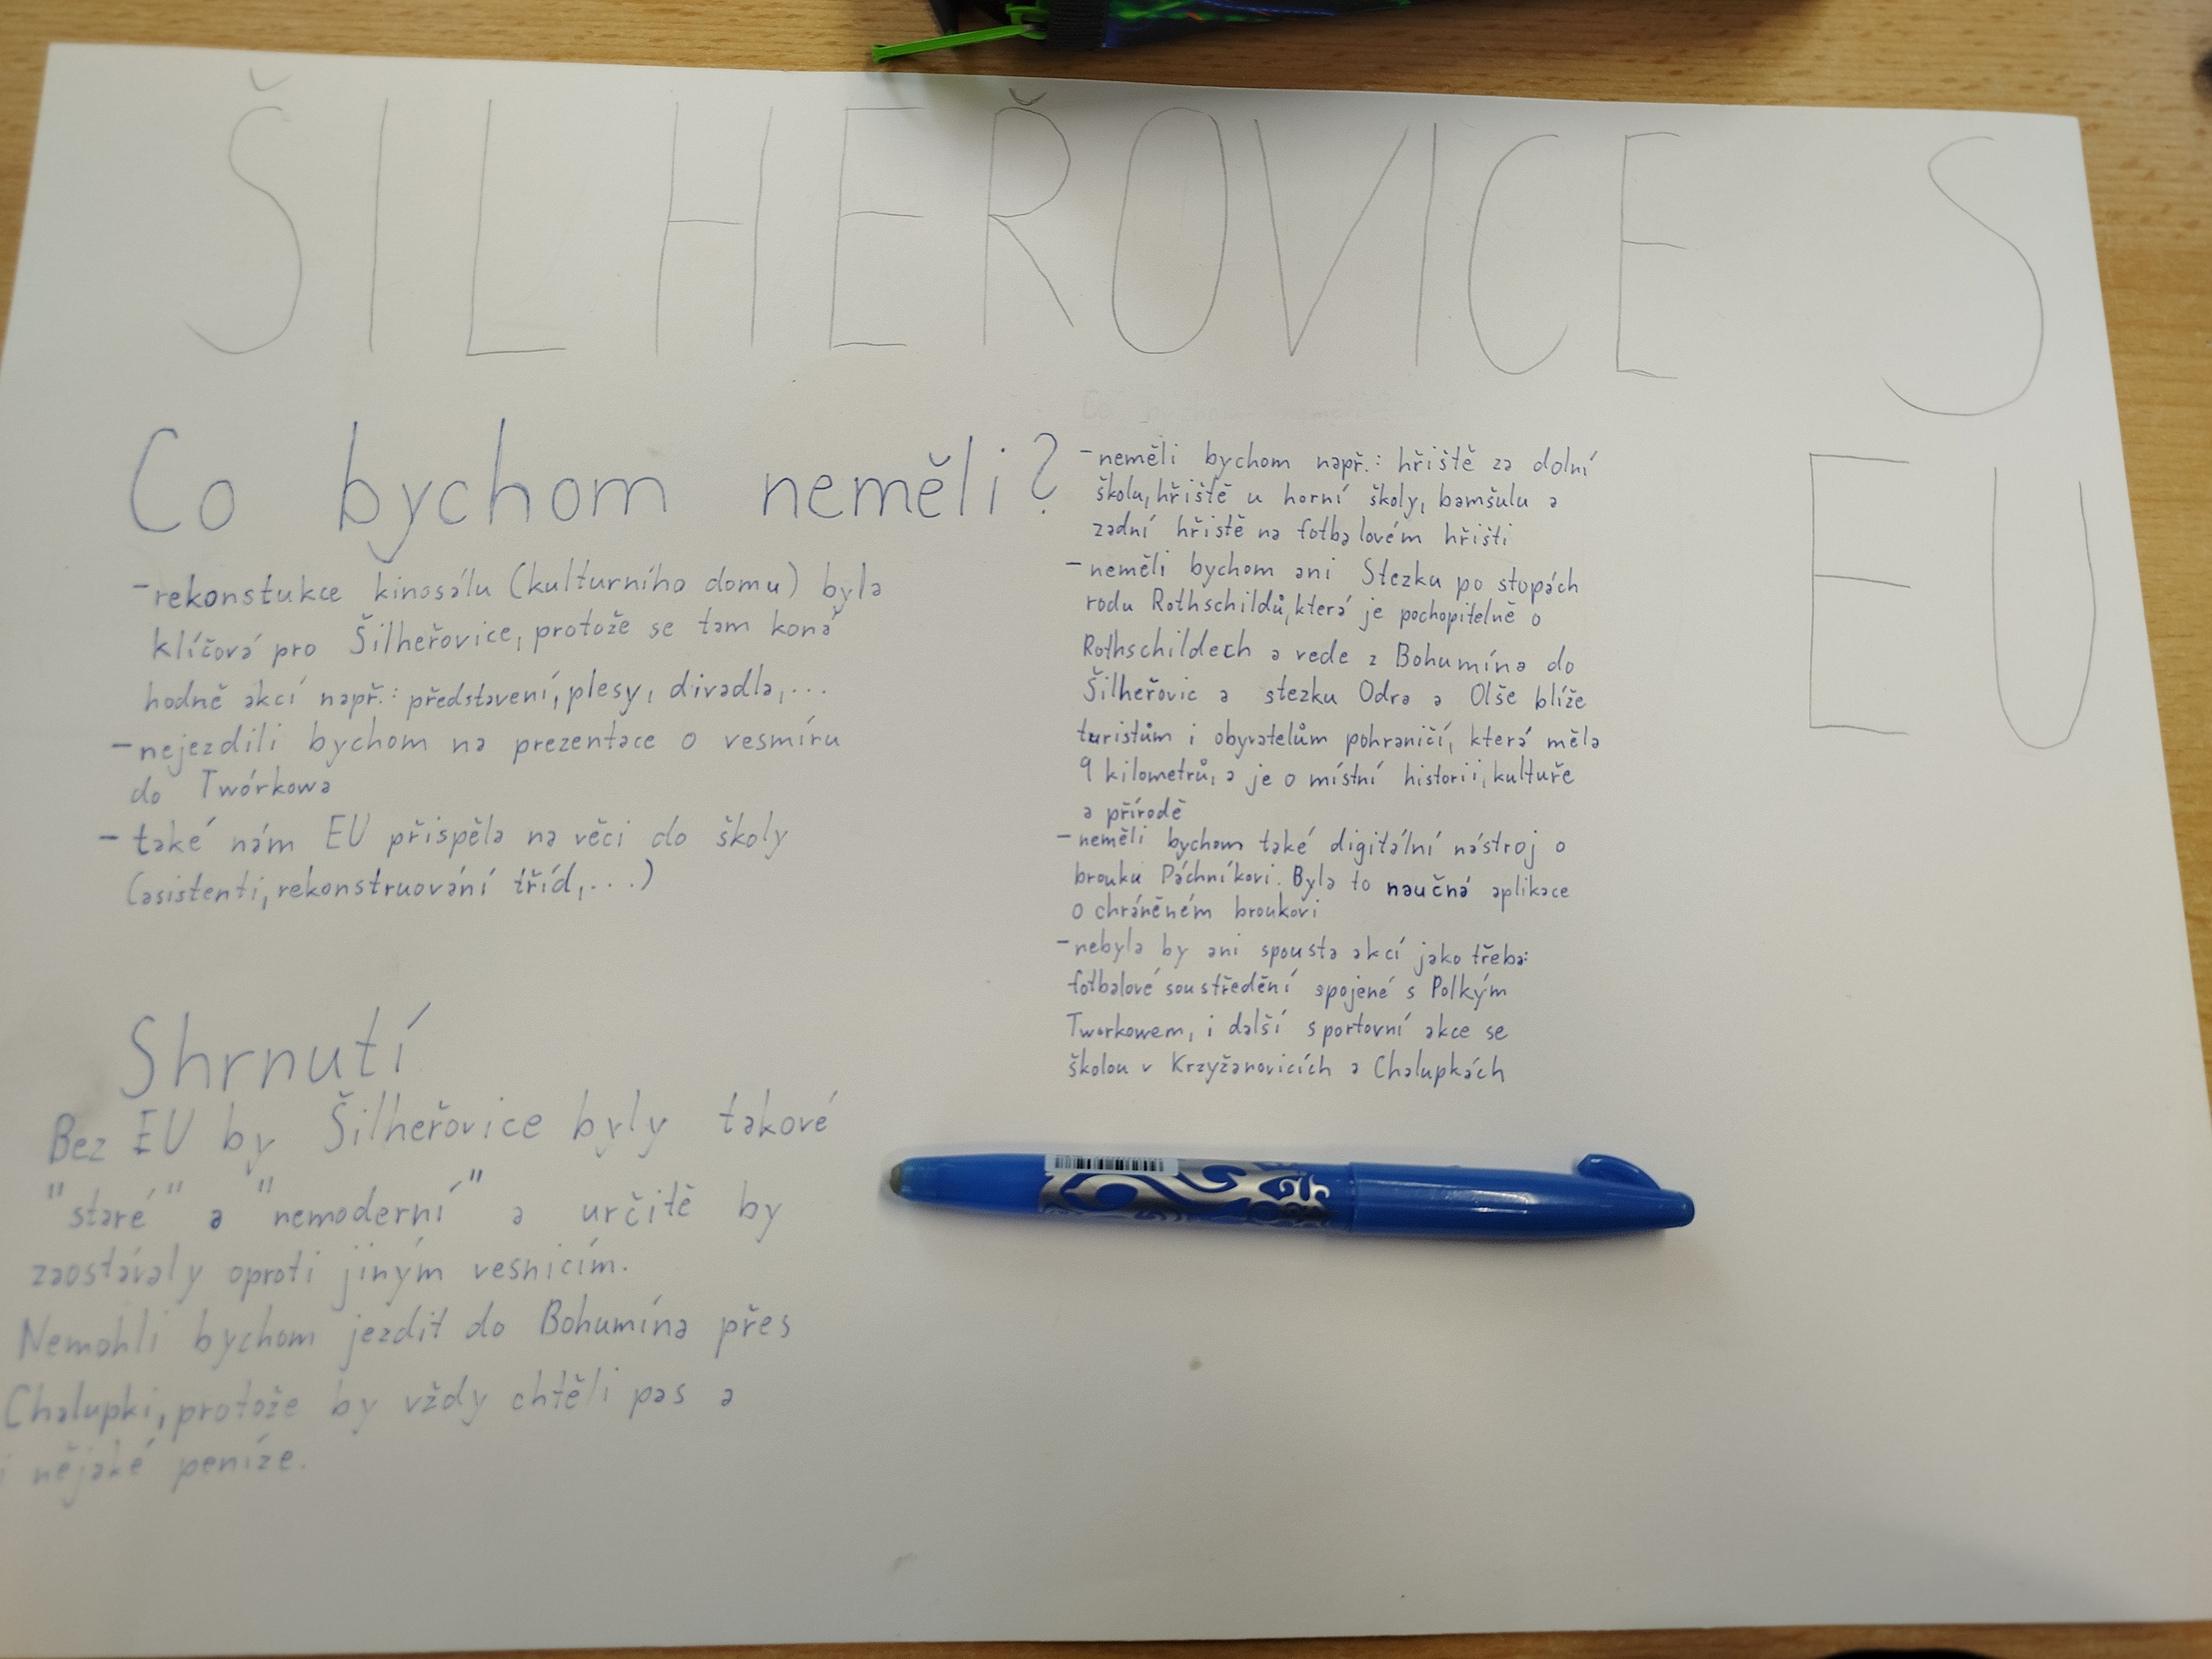 ŠILHEŘOVICE S
EU
Co bychom neměli?
-rekonstukce kinosálu (kulturního domu) byla
klíčová pro Šilheřovice, protože se tam koná
hodně akcí např.: představení, plesy, divadla,...
-nejezdili bychom na prezentace o vesmíru
do Twórkowa
- také nám EU přispěla na věci do školy
(asistenti, rekonstruování tříd,...)
Shrnutí
Bez EU by Šilheřovice byly takové
"staré" a "nemoderní" a určitě by
zaostávaly oproti jiným vesnicím.
Nemohli bychom jezdit do Bohumína přes
Chalupki, protože by vždy chtěli pas a
i nějaké peníze.
-neměli bychom např.: hřiště za dolní
školu, hřiště u horní školy, bamšulu a
zadní hřistě na fotbalovém hřišti
-neměli bychom ani Stezku po stopách
rodu Rothschildů, která je pochopitelně o
Rothschildech a vede z Bohumína do
Šilheřovic a stezku Odra a Olše blíže
turistům i obyvatelům pohraničí, která měla
9 kilometrů, a je o místní historii, kultuře
a přírodě
-neměli bychom také digitální nástroj o
brouku Páchníkovi. Byla to naučná aplikace
o chráněném broukovi
-nebyla by ani spousta akcí jako třeba:
fotbalové soustředění spojené s Polkým
Tworkowem, i další sportovní akce se
školou v Krzyžanovicích a Chalupkách